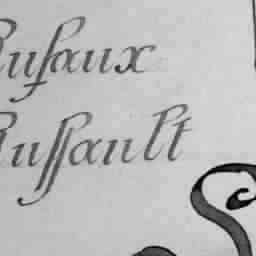 uſaux
uſſault